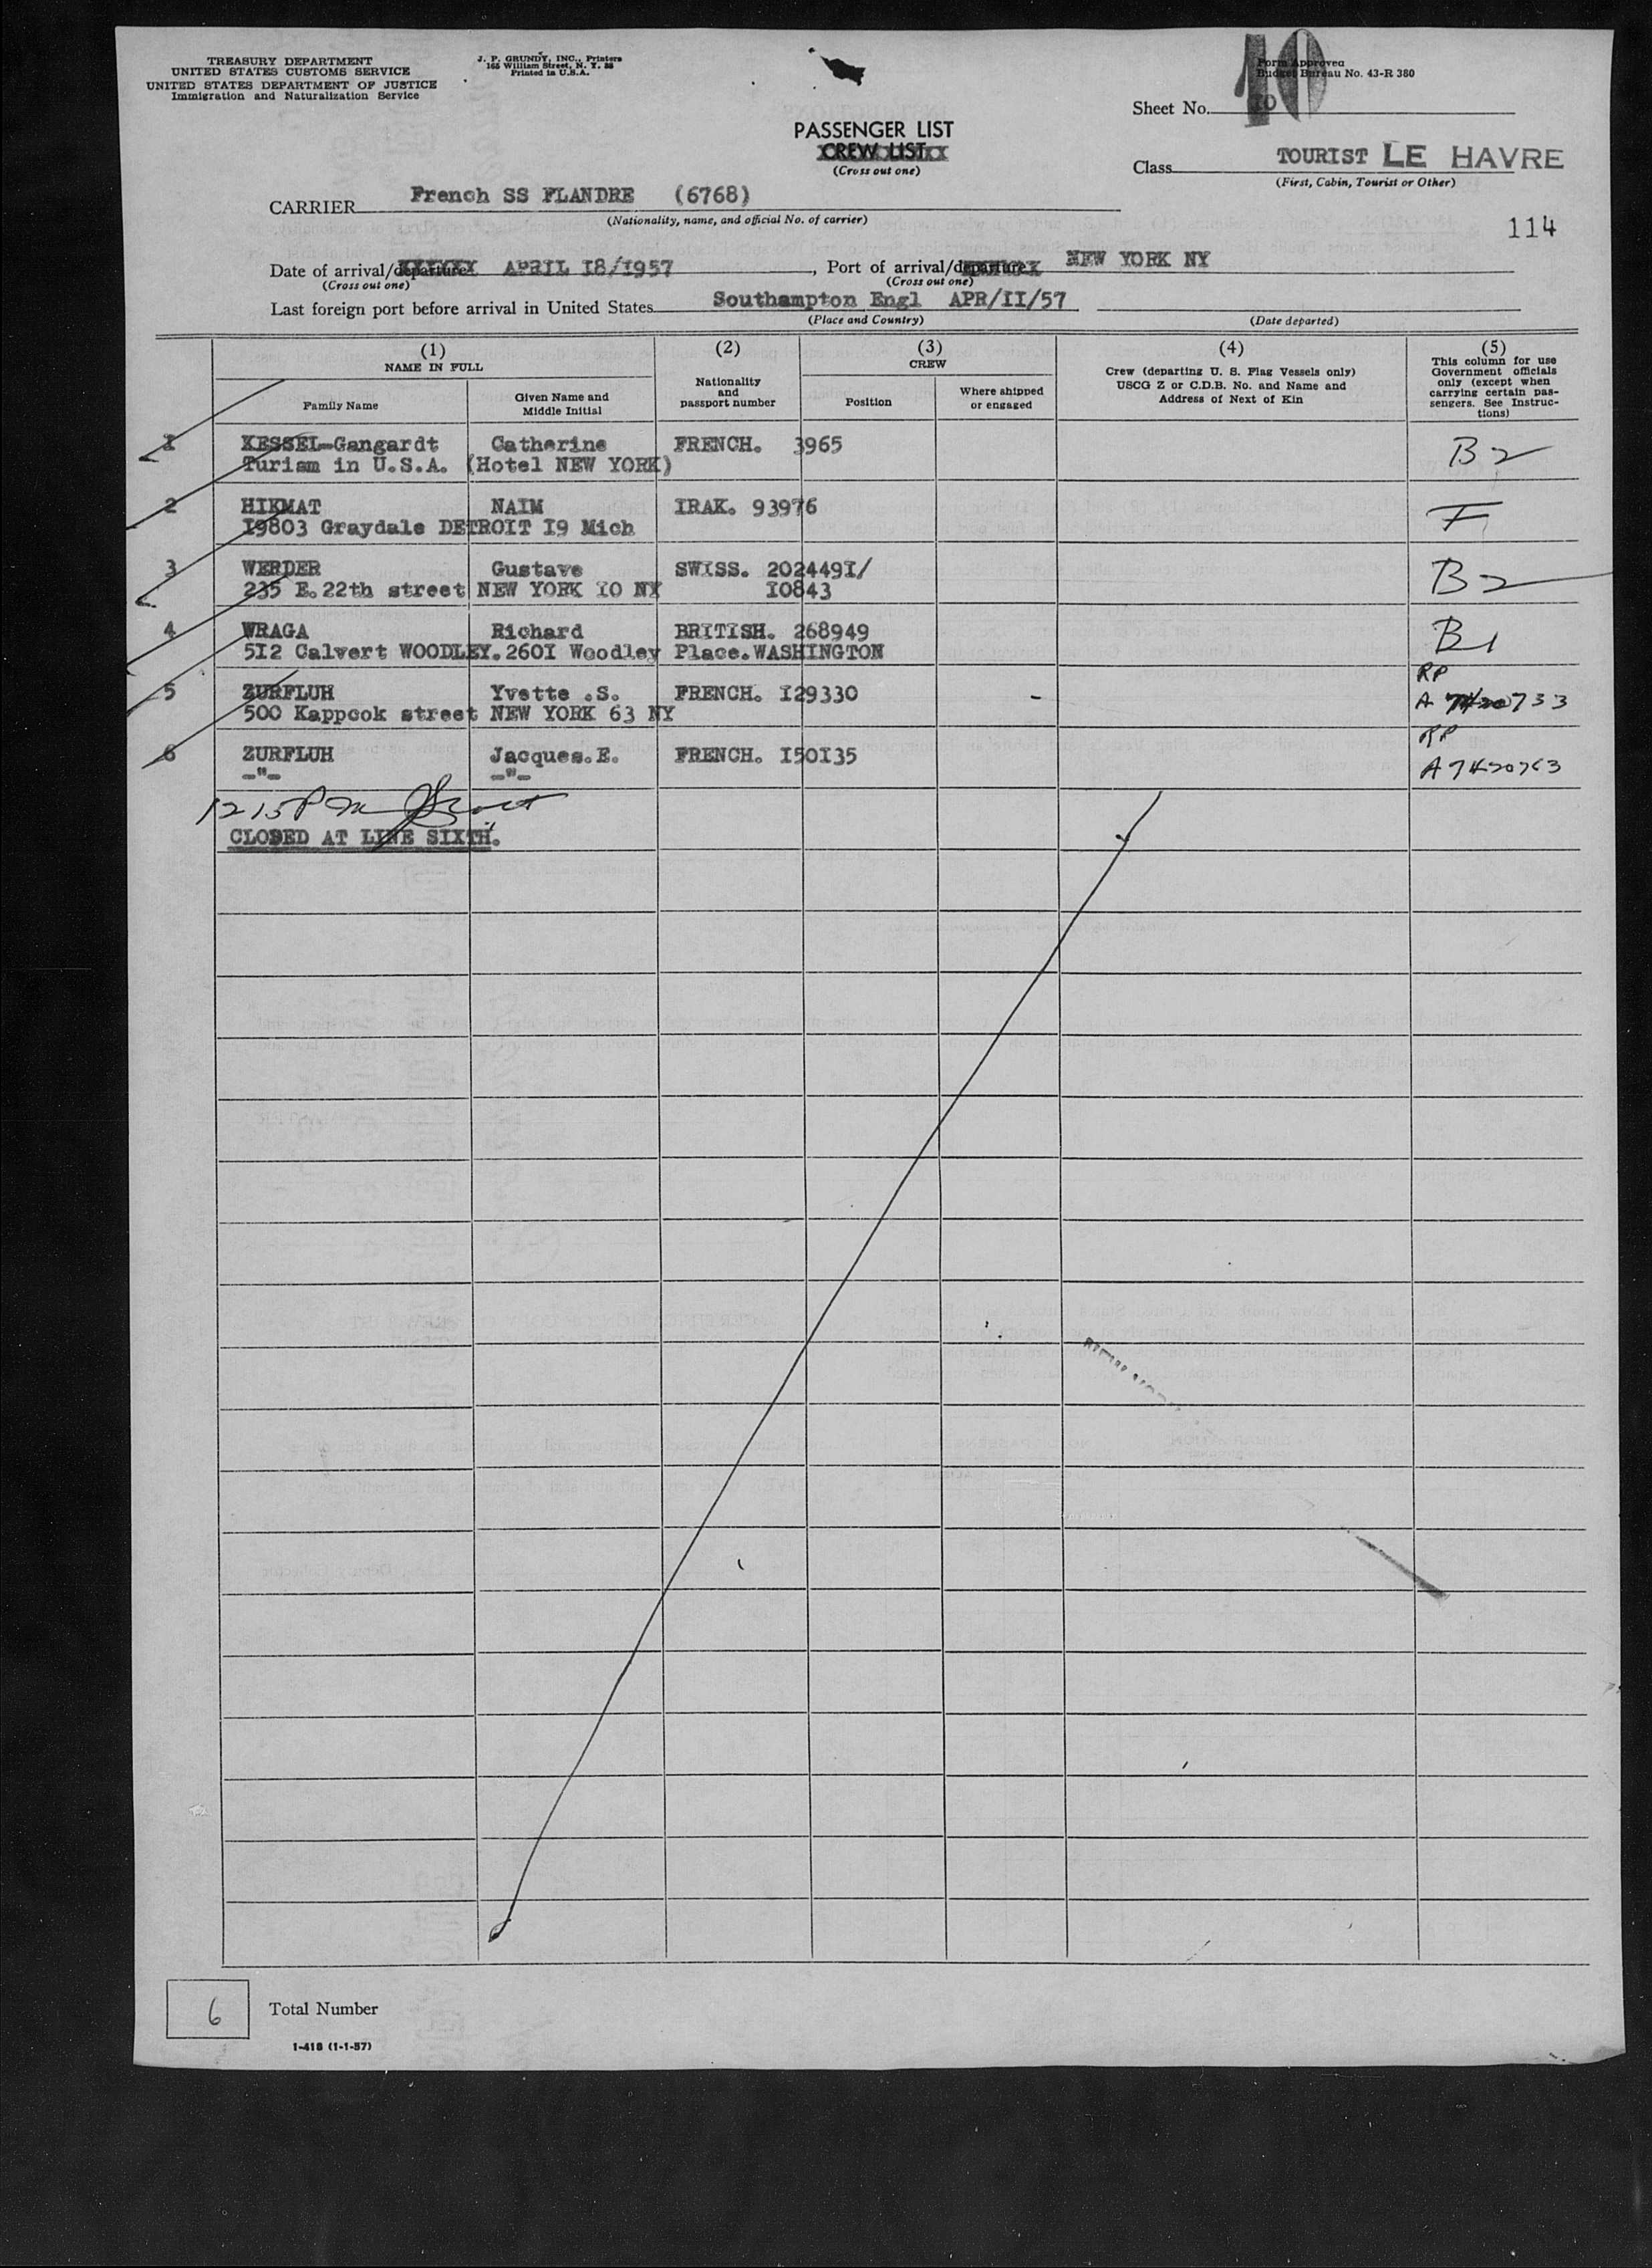 TREASURY DEPARTMENT
UNITED STATES CUSTOMS SERVICE
UNITED STATES DEPARTMENT OF JUSTICE
Immigration and Naturalization Service
J. P. GRUNDY, INC., Printers
165 William Street, N. Y. 38
Printed in U.S.A.
Form Approved
Budget Bureau No. 43-R 380
10
Sheet No. 10
PASSENGER LIST
CREW LIST
(Cross out one)
Class TOURIST LE HAVRE
(First, Cabin, Tourist or Other)
CARRIER French SS FLANDRE (6768)
(Nationality, name, and official No. of carrier)
114
Date of arrival/departure APRIL I8/I957, Port of arrival/departure NEW YORK NY
(Cross out one) (Cross out one)
Last foreign port before arrival in United States Southampton Engl APR/II/57
(Place and Country) (Date departed)
(1) NAME IN FULL
Family Name
Given Name and Middle Initial
(2)
Nationality and passport number
(3) CREW
Position
Where shipped or engaged
(4)
Crew (departing U. S. Flag Vessels only)
USCG Z or C.D.B. No. and Name and
Address of Next of Kin
(5)
This column for use
Government officials
only (except when
carrying certain pas-
sengers. See Instruc-
tions)
I KESSEL-Gangardt Catherine FRENCH. 3965 B2
Turism in U.S.A. (Hotel NEW YORK)
2 HIKMAT NAIM IRAK. 93976 F
I9803 Graydale DETROIT I9 Mich
3 WERDER Gustave SWISS. 202449I/ B2
235 E.22th street NEW YORK IO NY I0843
4 WRAGA Richard BRITISH. 268949 B1
5I2 Calvert WOODLEY.260I Woodley Place.WASHINGTON
RP
5 ZURFLUH Yvette .S. FRENCH. I29330 - A 733
500 Kappcok street NEW YORK 63 NY
RP
6 ZURFLUH Jacques.E. FRENCH. I50I35 A7420763
-"- -"-
1215 PM
CLOSED AT LINE SIXTH.
6 Total Number
1-418 (1-1-57)